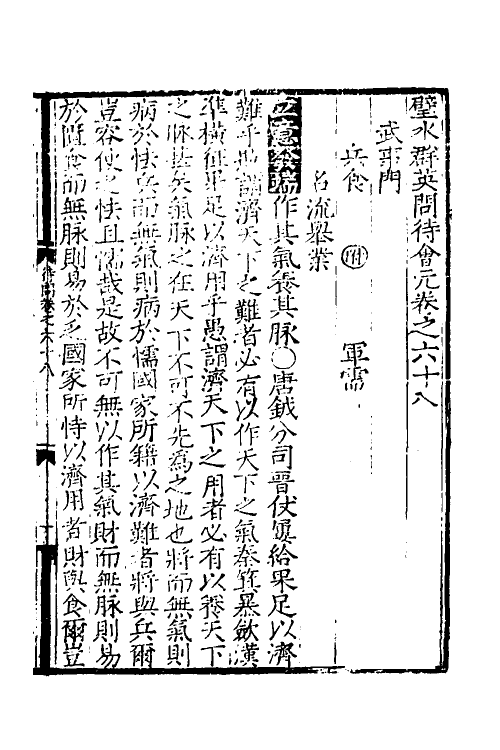 璧水群英問待會元卷之六十八
武事門
兵食 附 軍需
名流舉業
立意發端作其氣養其脉○唐鉞分司晋仗寔給果足以濟
難乎愚謂濟天下之難者必有以作天下之氣秦箕暴歛漢
準橫征果足以濟用乎愚謂濟天下之用者必有以養天下
之脉甚矣氣脉之在天下不可不先爲之地也將而無氣則
病於怯兵而無氣則病於懦國家所籍以濟難者將與兵爾
豈容使之怯且懦哉是故不可無以作其氣財而無脉則易
於匱食而無脉則易於乏國家所恃以濟用者財與食爾豈